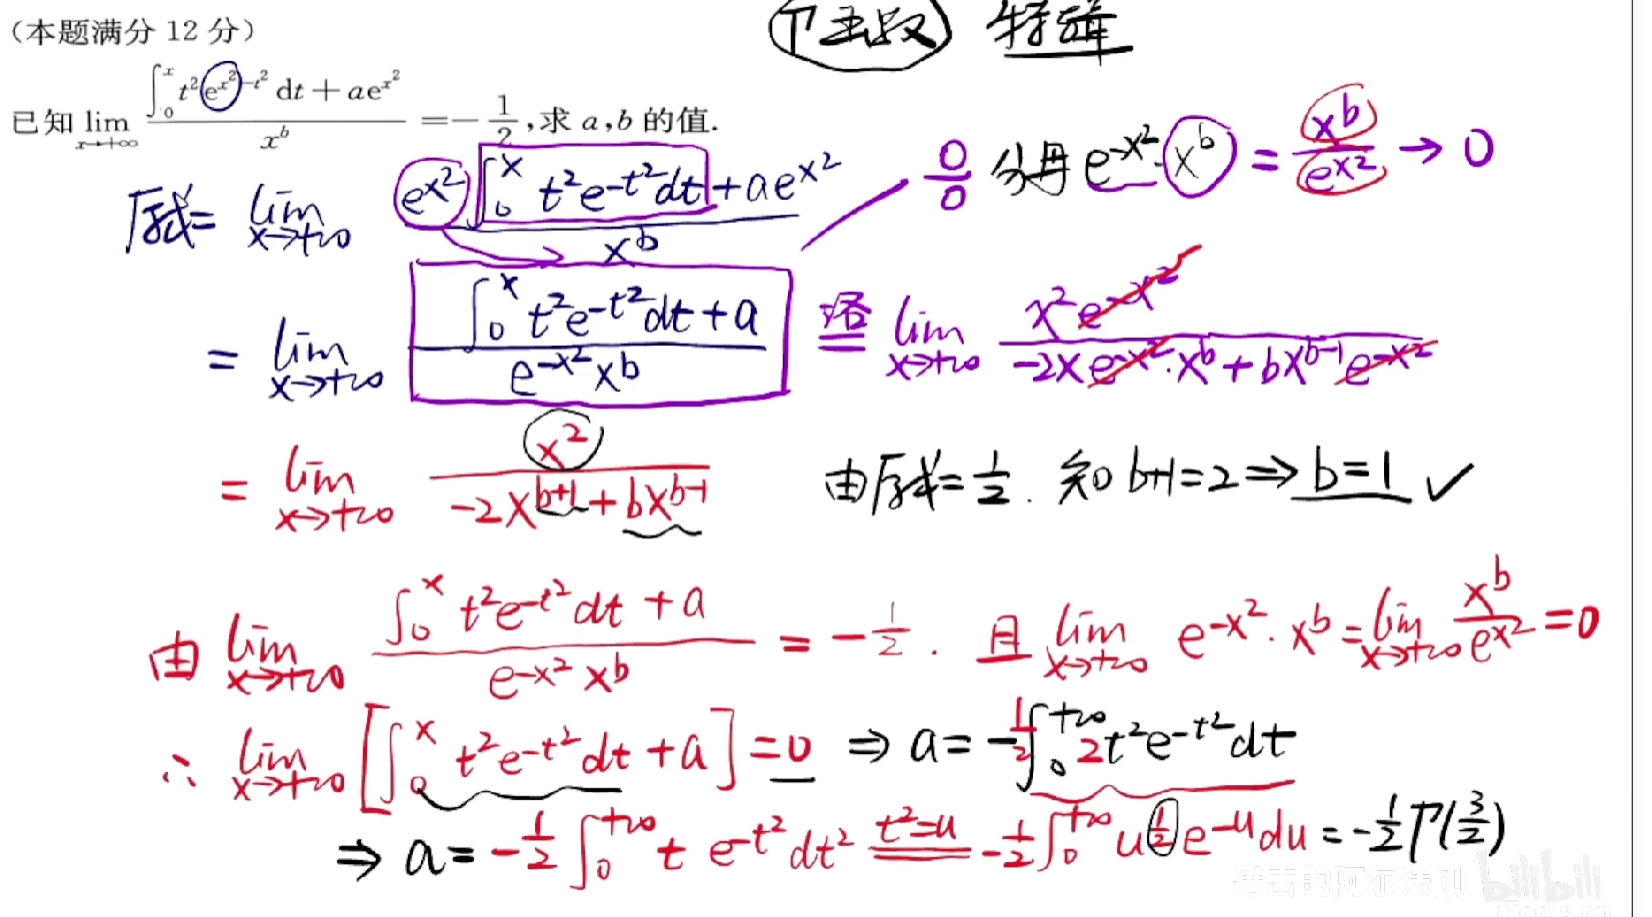 (本题满分 12 分)
Γ函数 特辑
已知 lim_{x→+∞} (∫_0^x t²e^{x²-t²} dt + ae^{x²}) / x^b = -1/2, 求 a,b 的值.
原式 = lim_{x→+∞} (e^{x²} ∫_0^x t²e^{-t²}dt + ae^{x²}) / x^b
0/0 分母 e^{-x²}·x^b = x^b / e^{x²} → 0
= lim_{x→+∞} (∫_0^x t²e^{-t²}dt + a) / (e^{-x²}x^b) 洛 lim_{x→+∞} x²e^{-x²} / (-2xe^{-x²}·x^b + bx^{b-1}e^{-x²})
= lim_{x→+∞} x² / (-2x^{b+1} + bx^{b-1}) 由原式=1/2. 知 b+1=2 ⇒ b=1 ✓
由 lim_{x→+∞} (∫_0^x t²e^{-t²}dt + a) / (e^{-x²}x^b) = -1/2. 且 lim_{x→+∞} e^{-x²}·x^b = lim_{x→+∞} x^b / e^{x²} = 0
∴ lim_{x→+∞} [∫_0^x t²e^{-t²}dt + a] = 0 ⇒ a = -1/2 ∫_0^{+∞} 2t²e^{-t²}dt
⇒ a = -1/2 ∫_0^{+∞} t e^{-t²}dt² t²=u -1/2 ∫_0^{+∞} u^{1/2} e^{-u}du = -1/2 Γ(3/2)
进击的阿尔法刘 bilibili